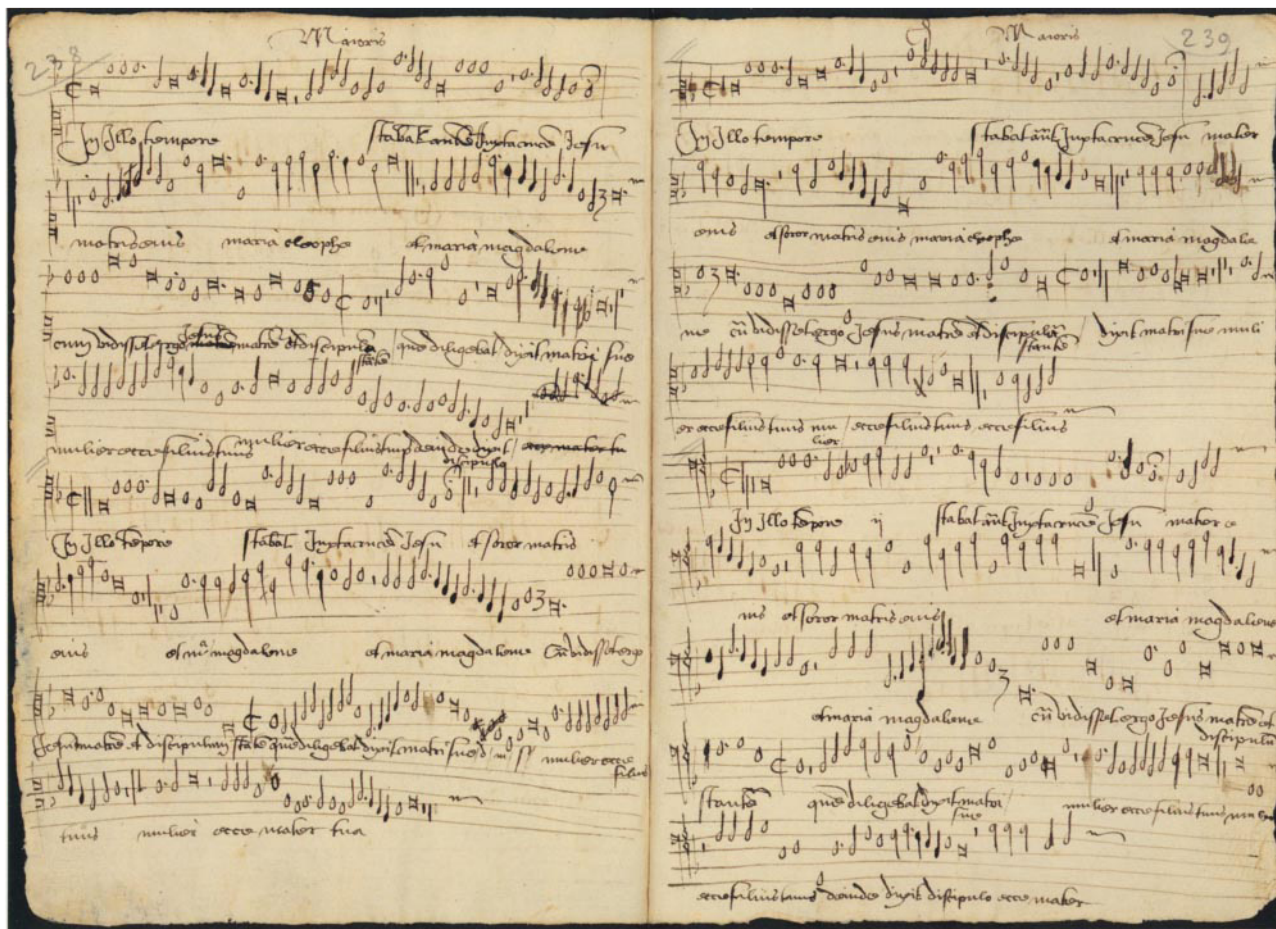 Maioris
In Illo tempore stabat Iuxta crucem Jesu
matris eius maria cleophe et maria magdalene
cum vidisset ergo Jesus matrem et discipulu stante que diligebat dixit matri sue
mulier ecce filius tuus mulier ecce filius tuus deinde dixit discipulo ecce mater tu
In Illo tempore stabat Iuxta crucem Jesu et soror matris
eius et mª magdalene et maria magdalene Cu vidisset ergo
Jesus matre et discipulum state que diligebat dixit matri sue mulier ecce filius
tuus mulier ecce mater tua
Maioris
239
In Illo tempore stabat aut Iuxta cruce Jesu mater
eius et soror matris eius maria cleophe et maria magdale
ne cu vidisset ergo Jesus matre et discipulu stante dixit matri sue muli
er ecce filius tuus mulier ecce filius tuus ecce filius
In Illo tempore ij stabat aut Iuxta cruce Jesu mater e
ius et soror matris eius et maria magdalene
et maria magdalene cu vidisset ergo Jesus matre et discipulu
stante que diligebat dixit matri sue mulier ecce filius tuus
ecce filius tuus deinde dixit discipulo ecce mater